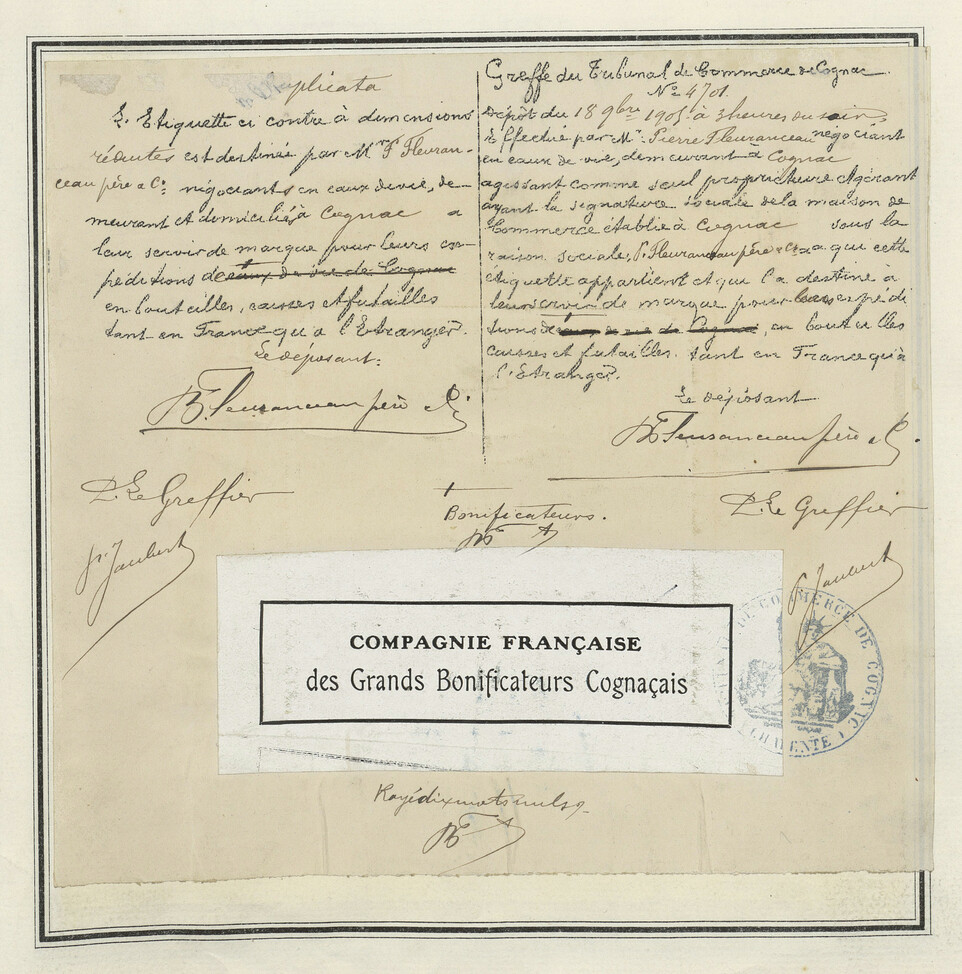 uplicata
L'Etiquette ci contre à dimensions
réduites est destinée par Mrs F Fleuran-
ceau père & Cie négociants en eaux de vie, de-
meurant et domiciliés à Cognac a
leur servir de marque pour leurs ex-
péditions de eaux de vie de Cognac
en bouteilles, caisses et futailles
tant en France qu'à l'Etranger.
Le déposant:
P. Fleuranceau père & Cie
P. Le Greffier
P. Jaubert
Greffe du Tribunal de Commerce de Cognac
No 4701
Dépôt du 18 9bre 1905 à 3 heures du soir,
Effectué par Mr. Pierre Fleuranceau négociant
en eaux de vie, demeurant à Cognac
agissant comme seul propriétaire & gérant
ayant la signature sociale de la maison de
Commerce établie à Cognac sous la
raison sociale, P. Fleuranceau père & Cie à qui cette
étiquette appartient et qui l'a destine à
leur servir de marque pour leurs expédi
tions de eaux de vie de Cognac, en bouteilles
caisses et futailles tant en France qu'à
l'Etranger.
Le déposant
P. Fleuranceau père & Cie
P. Le Greffier
P. Jaubert
Bonificateurs.
COMPAGNIE FRANÇAISE
des Grands Bonificateurs Cognaçais
DE COMMERCE DE COGNAC
CHARENTE
Rayé dix mots nuls